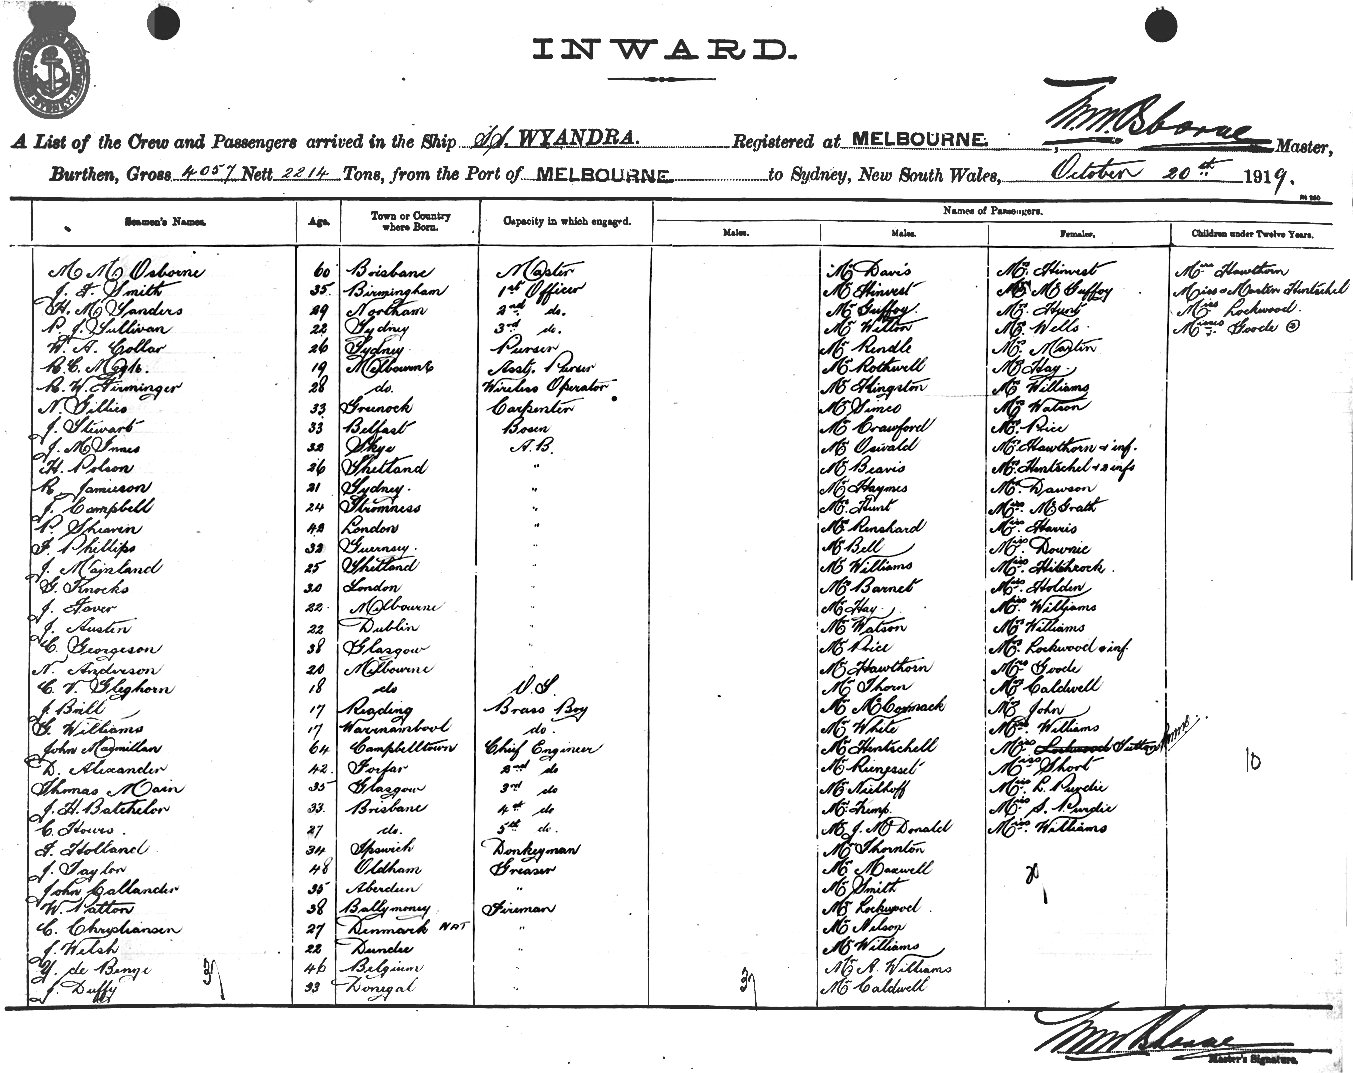 INWARD.
A List of the Crew and Passengers arrived in the Ship S/S. WYANDRA. Registered at MELBOURNE. Wm M. Osborne Master,
Burthen, Gross 4057 Nett 2214 Tons, from the Port of MELBOURNE to Sydney, New South Wales, October 20th 1919.
Names of Passengers.
Seamen's Names. Age. Town or Country where Born. Capacity in which engaged. Males. Males. Females. Children under Twelve Years.
M Osborne 60 Brisbane Master Mr Davis Mrs. Hinvest Miss Hawthorn
J. F. Smith 35 Birmingham 1st Officer Mr Hinvest Mrs McGuffoy Miss & Master Hentschel
H. M. Sanders 29 Northam 2nd do. Mr Guffoy Mrs. Hunt Miss Lockwood
P. J. Sullivan 22 Sydney 3rd do. Mr Wilton Mrs Wells Misses Goode 2
W. A. Collar 26 Sydney Purser Mr Rendle Mrs. Martin
R. C. 19 Melbourne Asst. Purser Mr Rothwell Mrs Hay
R. W. Firminger 28 do. Wireless Operator Mr Hingston Mrs Williams
N. Gillies 33 Greenock Carpenter Mr Simes Mrs Watson
J. Stewart 33 Belfast Bosen Mr Crawford Mrs. Price
J. McInnes 32 Skye A.B. Mr Oswald Mrs. Hawthorn & inf.
H. Polson 26 Shetland " Mr Beavis Mrs. Hentschel & 2 infs
R. Jamieson 21 Sydney. " Mr Haymes Mrs. Dawson
J. Campbell 24 Stromness " Mr Hunt Miss. McGrath
P. Sheavin 42 London " Mr Renshard Miss. Harris
F. Phillips 32 Guernsey. " Mr Bell Miss. Downie
J. Mainland 25 Shetland " Mr Williams Miss. Hitchcock.
G. Knocks 30 London " Mr Barnet Miss. Holden
J. Faver 22 Melbourne " Mr Hay Miss. Williams
J. Austen 22 Dublin " Mr Watson Mrs Williams
C. Georgeson 38 Glasgow " Mr Price Mrs. Lockwood & inf.
N. Anderson 20 Melbourne " Mr Hawthorn Mrs Goode
C. V. Gleghorn 18 do O.S. Mr Thorn Mrs Caldwell
J. Brill 17 Reading Brass Boy Mr McCormack Mrs John
G. Williams 17 Warrnambool do. Mr White Miss. Williams
John Macmillan 64 Campbelltown Chief Engineer Mr Hentschell Miss Lockwood Sutton
D. Alexander 42. Forfar 2nd do Mr Miss Short
Thomas Main 35 Glasgow 3rd do Mr Nielhoff Miss. L. Purdie
J. H. Batchelor 33. Brisbane 4th do Mr. Trump. Miss. S. Purdie
C. Howes. 27 do. 5th do. Mr J. McDonald Miss. Williams
F. Holland 34 Ipswich Donkeyman Mr Thornton
J. Taylor 48 Oldham Greaser Mr Maxwell
John Callander 35 Aberdeen " Mr Smith
W. Patton 38 Ballymoney Fireman Mr Lockwood
C. Christiansen 27 Denmark NAT " Mr Nelson
J. Welsh 22 Dundee " Mr Williams
Y. de Benge 46 Belgium " Mr A. Williams
J. Duffy 33 Donegal " Mr Caldwell
37 37 29 10
Wm M. Osborne
Master's Signature.